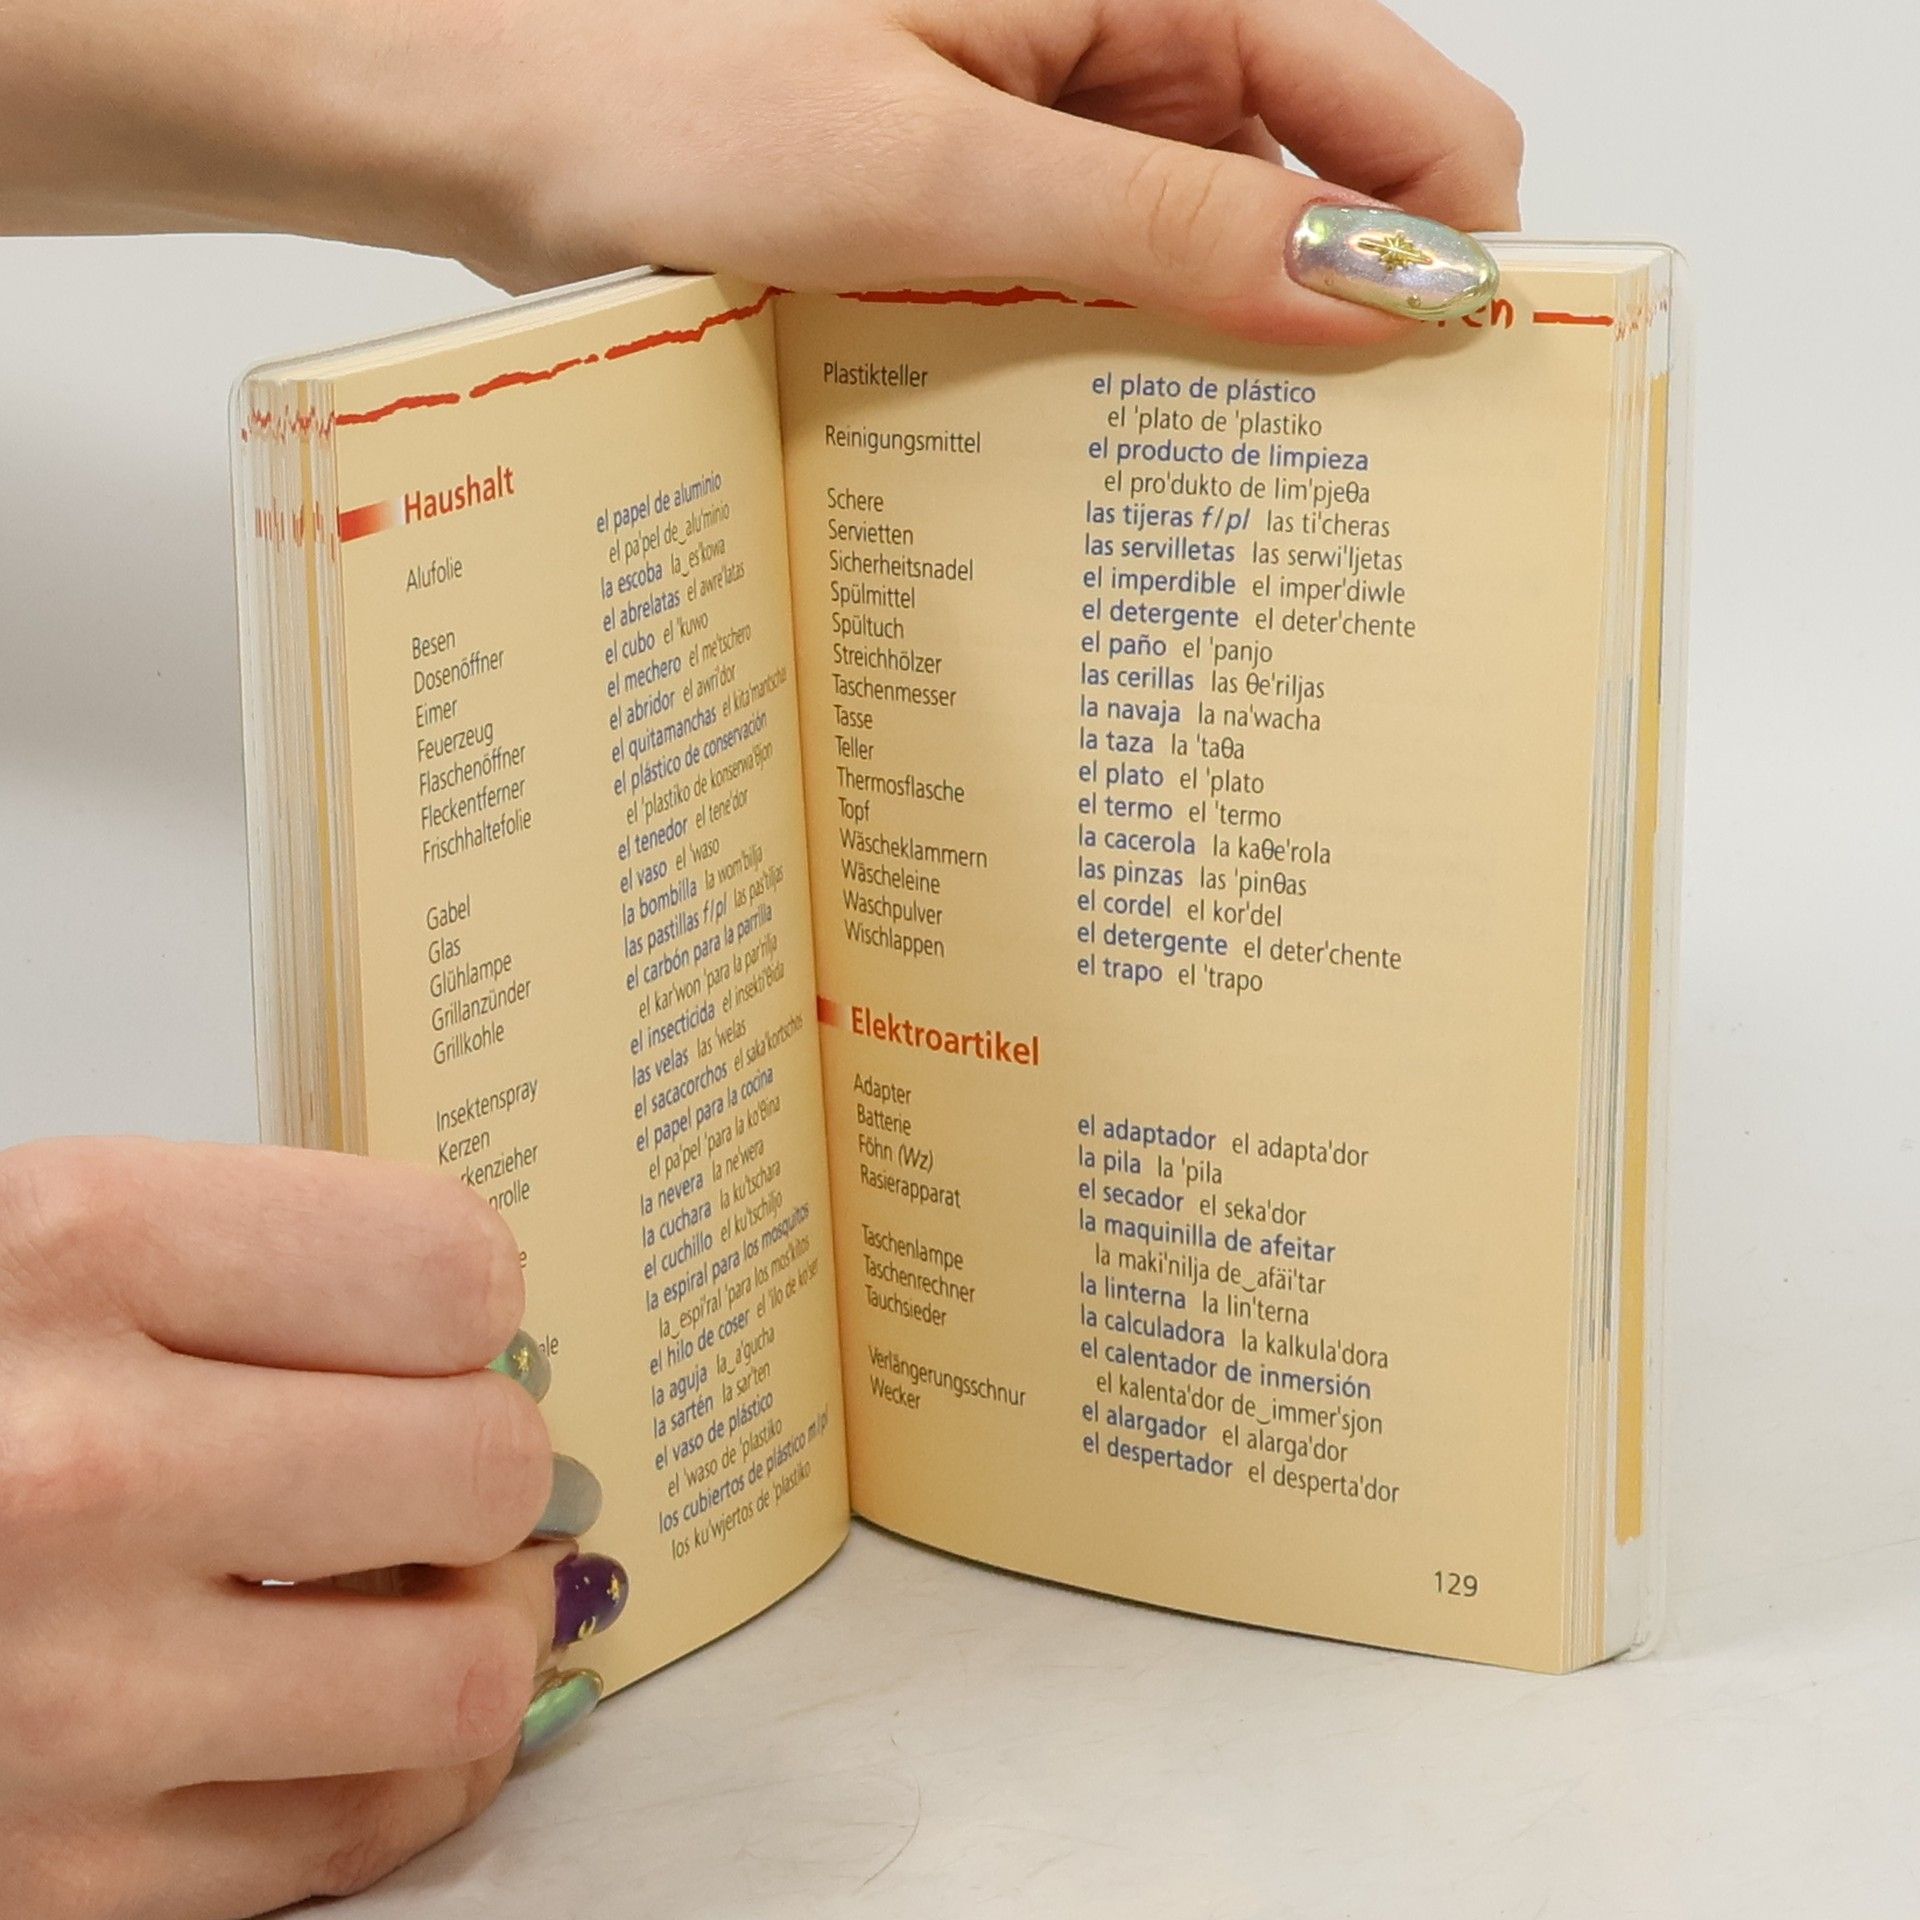 Haushalt
Alufolie el papel de aluminio
el pa'pel de‿alu'minio
Besen la escoba la‿es'kowa
Dosenöffner el abrelatas el awre'latas
Eimer el cubo el 'kuwo
Feuerzeug el mechero el me'tschero
Flaschenöffner el abridor el awri'dor
Fleckentferner el quitamanchas el kita'mantschas
Frischhaltefolie el plástico de conservación
el 'plastiko de konserwa'θjon
Gabel el tenedor el tene'dor
Glas el vaso el 'waso
Glühlampe la bombilla la wom'bilja
Grillanzünder las pastillas f/pl las pas'tiljas
Grillkohle el carbón para la parrilla
el kar'won 'para la par'rilja
Insektenspray el insecticida el insekti'θida
Kerzen las velas las 'welas
rkenzieher el sacacorchos el saka'kortschos
nrolle el papel para la cocina
el pa'pel 'para la ko'θina
la nevera la ne'wera
e la cuchara la ku'tschara
el cuchillo el ku'tschiljo
la espiral para los mosquitos
la‿espi'ral 'para los mos'kitos
ele el hilo de coser el 'ilo de ko'ser
la aguja la‿a'gucha
la sartén la sar'ten
el vaso de plástico
el 'waso de 'plastiko
los cubiertos de plástico m/pl
los ku'wjertos de 'plastiko
ren
Plastikteller el plato de plástico
el 'plato de 'plastiko
Reinigungsmittel el producto de limpieza
el pro'dukto de lim'pjeθa
Schere las tijeras f/pl las ti'cheras
Servietten las servilletas las serwi'ljetas
Sicherheitsnadel el imperdible el imper'diwle
Spülmittel el detergente el deter'chente
Spültuch el paño el 'panjo
Streichhölzer las cerillas las θe'riljas
Taschenmesser la navaja la na'wacha
Tasse la taza la 'taθa
Teller el plato el 'plato
Thermosflasche el termo el 'termo
Topf la cacerola la kaθe'rola
Wäscheklammern las pinzas las 'pinθas
Wäscheleine el cordel el kor'del
Waschpulver el detergente el deter'chente
Wischlappen el trapo el 'trapo
Elektroartikel
Adapter el adaptador el adapta'dor
Batterie la pila la 'pila
Föhn (Wz) el secador el seka'dor
Rasierapparat la maquinilla de afeitar
la maki'nilja de‿afäi'tar
Taschenlampe la linterna la lin'terna
Taschenrechner la calculadora la kalkula'dora
Tauchsieder el calentador de inmersión
el kalenta'dor de‿immer'sjon
Verlängerungsschnur el alargador el alarga'dor
Wecker el despertador el desperta'dor
129